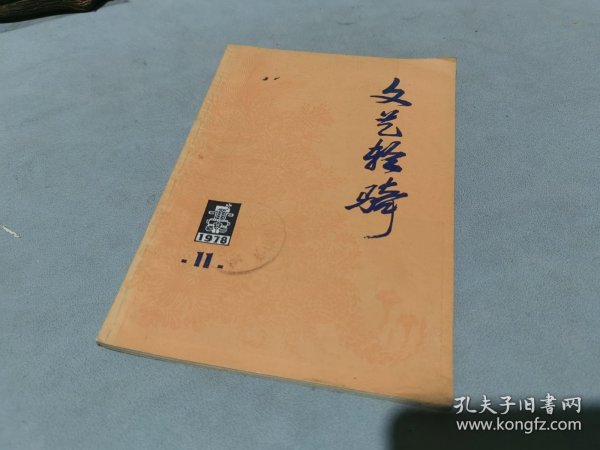 文艺轻骑
1978
·11·
孔夫子旧书网
www.kongfz.com